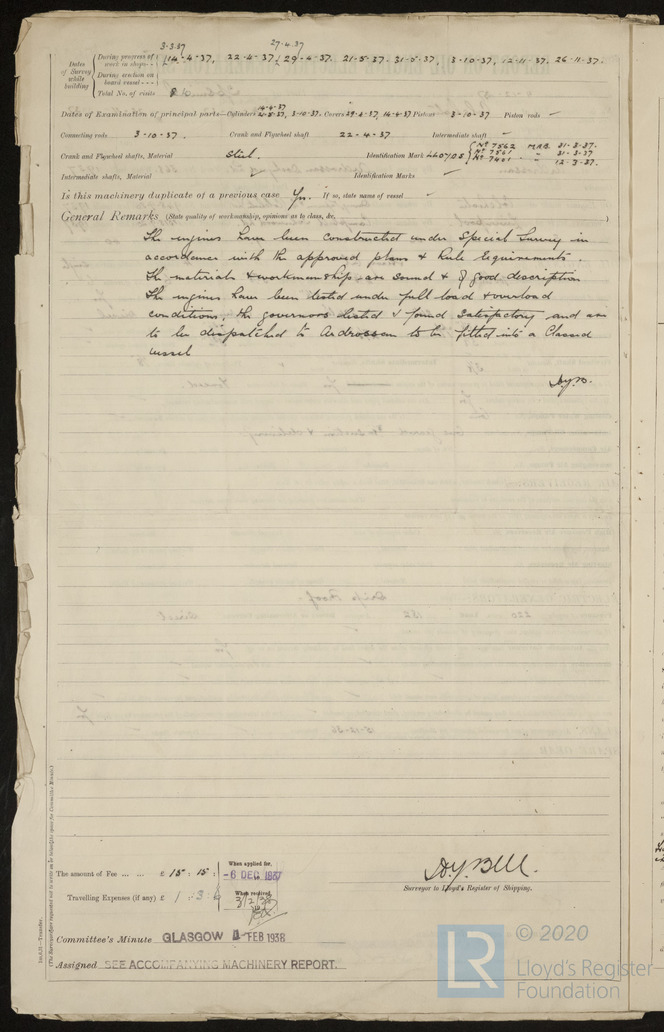 3-3-37 27-4-37
Dates of Survey while building
During progress of work in shops - - 14-4-37, 22-4-37, 29-4-37, 21-5-37, 31-5-37, 3-10-37, 12-11-37, 26-11-37.
During erection on board vessel - - -
Total No. of visits 10
14-4-37
Dates of Examination of principal parts—Cylinders 3-10-37. Covers 14-4-37 Pistons 3-10-37 Piston rods —
Connecting rods 3-10-37. Crank and Flywheel shaft 22-4-37 Intermediate shaft —
Crank and Flywheel shafts, Material Steel. Identification Mark LLOYDS
No 7562 MRB. 31-3-37.
No 7561 " 31-3-37
No 7401 " 12-3-37.
Intermediate shafts, Material Identification Marks
Is this machinery duplicate of a previous case Yes. If so, state name of vessel —
General Remarks (State quality of workmanship, opinions as to class, &c.)
The engines have been constructed under Special Survey in
accordance with the approved plans & Rule Requirements.
The materials & workmanship are sound & of good description
The engines have been tested under full load & overload
conditions, the governors tested & found satisfactory and are
to be dispatched to Ardrossan to be fitted into a Classed
vessel
The amount of Fee ... ... £ 15 : 15 : When applied for, -6 DEC 1937
Travelling Expenses (if any) £ 1 : 3 : 6 When received,
Surveyor to Lloyd's Register of Shipping.
Committee's Minute GLASGOW 1 FEB 1938
Assigned SEE ACCOMPANYING MACHINERY REPORT.
(The Surveyors are requested not to write on or below the space for Committee's Minute.)
LR © 2020
Lloyd's Register
Foundation